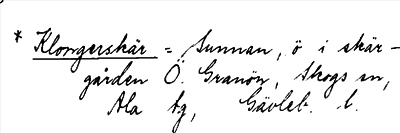 * Klongerskär = Sunnan, ö i skär-
gården Ö. Granön, Skogs sn,
Ala tg, Gävleb. l.